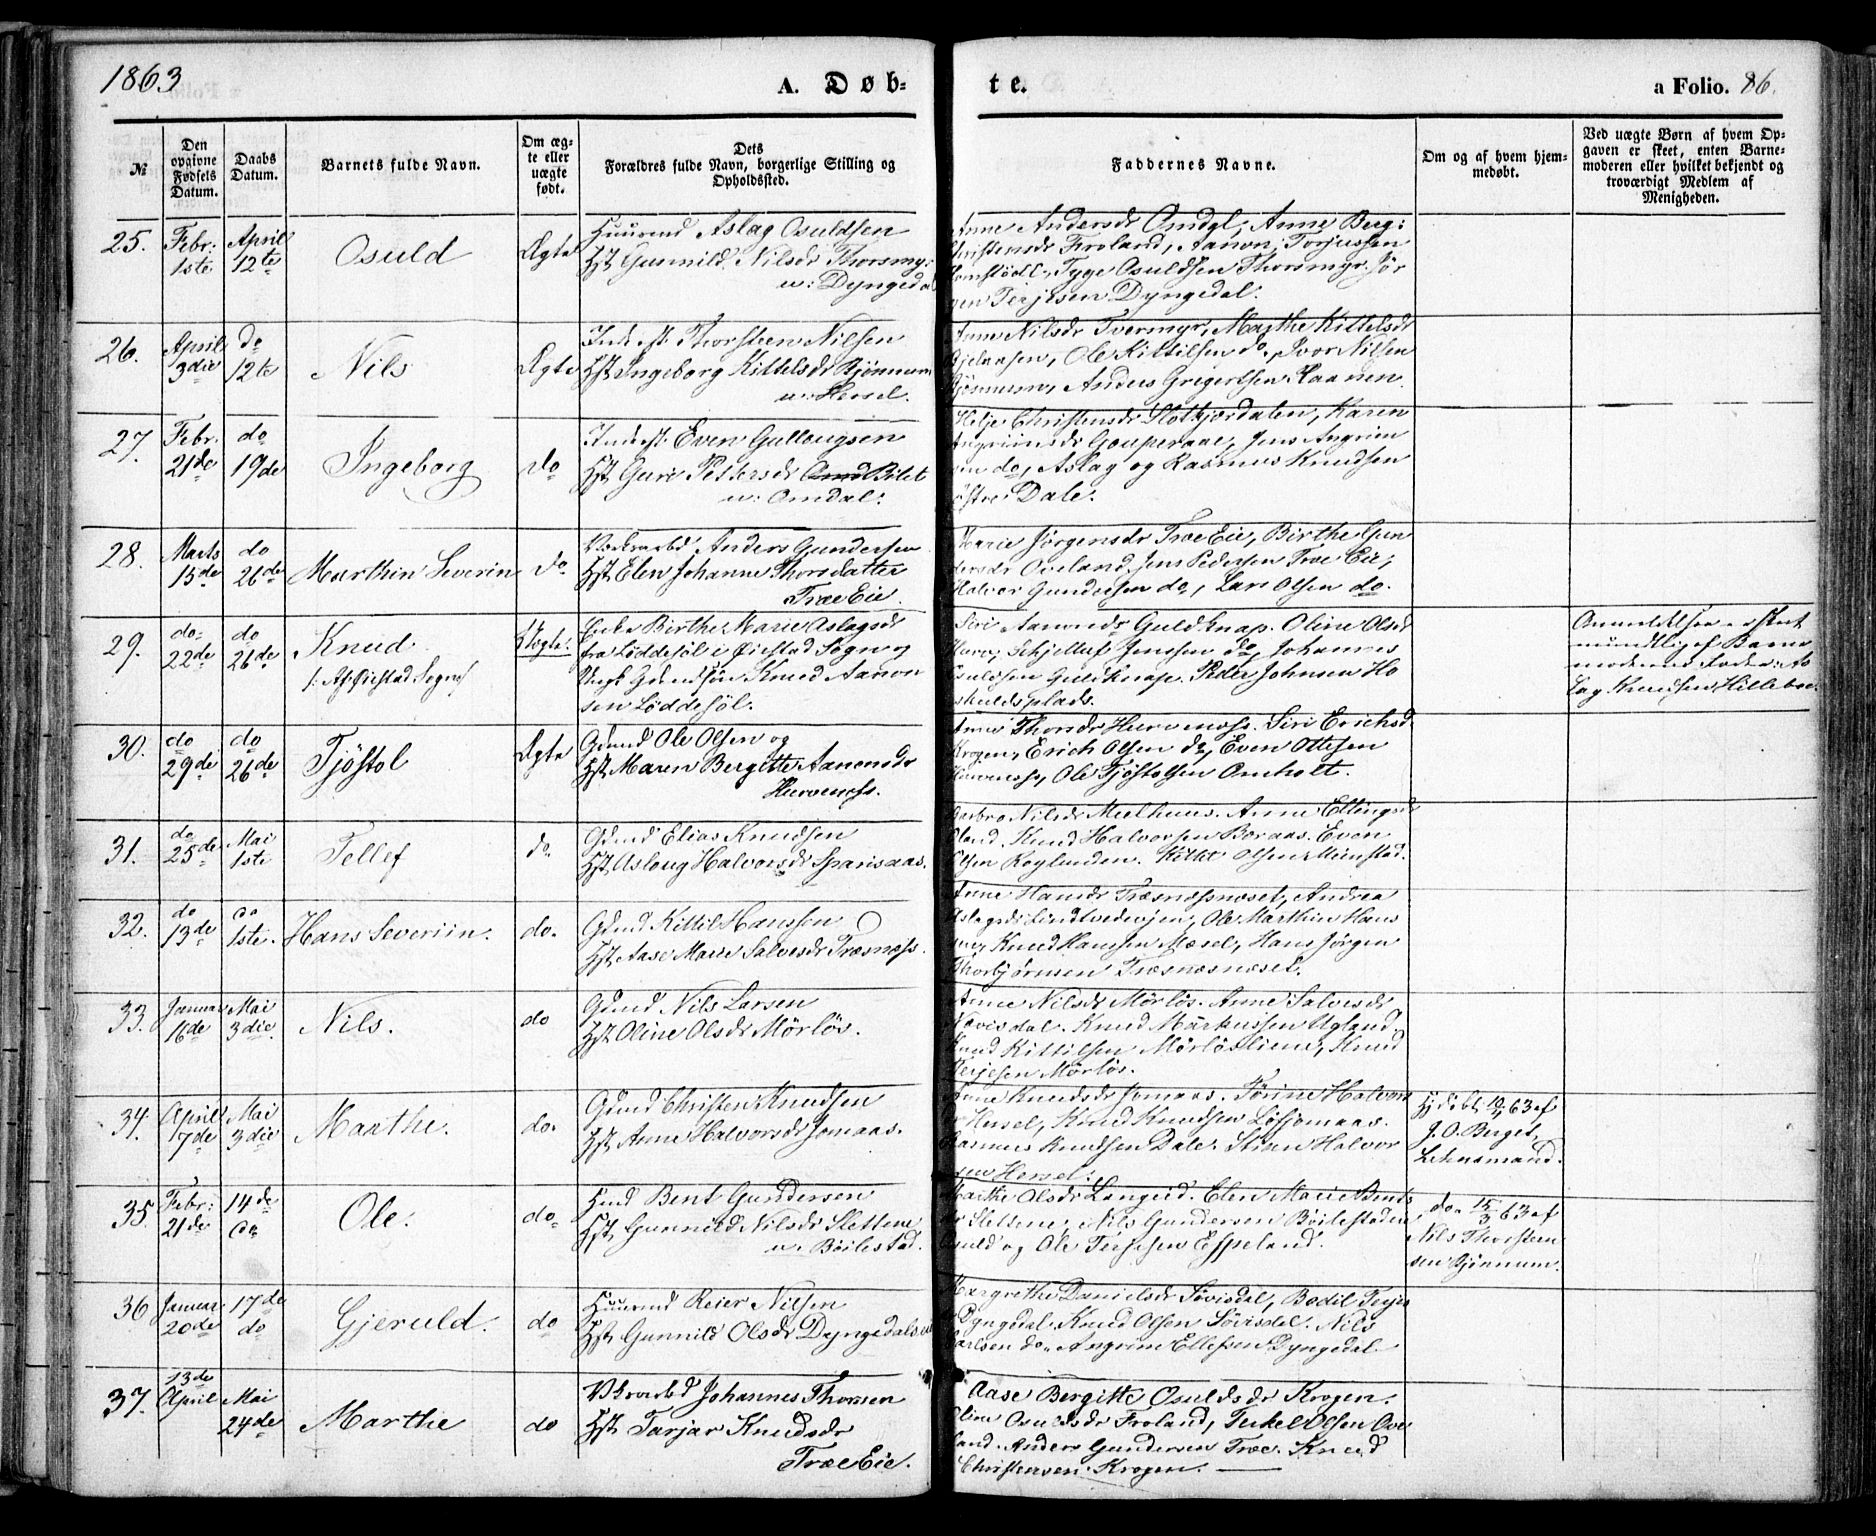 1863
A. Døb-
te.
a Folio. 86.
№
Den opgivne Fødsels Datum.
Daabs Datum.
Barnets fulde Navn.
Om æg-te eller uægte født.
Dets Forældres fulde Navn, borgerlige Stilling og Opholdssted.
Faddernes Navne.
Om og af hvem hjem-medøbt.
Ved uægte Børn af hvem Op-gaven er skeet, enten Barne-moderen eller hvilket bekjendt og troværdigt Medlem af Menigheden.
25.
Febr: 1ste
April 12te
Osuld
Ægte
Huusmd Aslag Osuldsen
Hst Gunnild Nilsdr Thorsmyr
u: Dyngedal
Anne Andersdr Omdal, Anne Berg:
Christensdr Froland, Aanon Torjussen
Tyge Osuldsen Thorsmyr. Jør
gen Terjesen Dyngedal.
26.
April 3die
do 12te
Nils
Ægte
Inderst Thorsteen Nilsen
Hst Ingeborg Kittelsdr Bjønnum
u: Hersel.
Anne Nilsdr Tvermyr, Marthe Kittelsdr
Ole Kittilsen do, Ivor Nilsen
Bjønnum, Anders Grigertsen Haanen
27.
Febr. 21de
do 19de
Ingeborg
do
Inderst Even Gullougsen
Hst Guri Pettersdr Bilet
u: Omdal.
Helje Christensdr Slotkjærdalen, Karen
Angrimsdr Gouperaae, Jens Angrim
sen do, Aslag og Rasmus Knudsen
østre Dale.
28.
Marts 15de
do 26de
Marthin Severin
do
Værkarbd Anders Gundersen
Hst Elen Johanne Thorsdatter
Træe Eie.
Marie Jørgensdr Træe Eie, Birthe Gun
dersdr Oveland, Jens Pedersen Træ Eie,
Halvor Gundersen do, Lars Olsen do.
29.
do 22de
do 26de
Knud
/: Af Øiestad Sogn :/
Uægte:
Enke Birthe Marie Aslagsdr
fra Løddesøl i Øiestad Sogn og
Ungk Gdmdsøn Knud Aanon
sen Løddesøl.
Siri Aanonsdr Guldknap. Oline Olsdr
Hurv, Schjellef Jenssen do, Johannes
Osuldsen Guldknap. Peder Johnsen Ho
skuldsplads.
Anmeldelsen er skeet
mundtlig af Barne
moderens Fader: As
lag Knudsen Hillebo.
30.
do 29de
do 26de
Tjøstol
Ægte
Gdmd Ole Olsen og
Hst Maren Bergitte Aanonsdr
Hurvenæss.
Anne Thorsdr Hurvenæss. Siri Erichsd.
Krogen, Erich Olsen do, Even Ottesen
Hurvenæss, Ole Tjøstolsen Omholt.
31.
do 25de
Mai 1ste
Tellef
do
Gdmd Elias Knudsen
Hst Aslaug Halvorsdr Sparsaas.
Barbro Nilsdr Mielhuus. Anne Ellingsd
Knud Halvorsen Boraas. Even
Olsen Roglunden. Kittil Olsen Mimstad.
32.
do 13de
do 1ste.
Hans Severiin.
do.
Gdmd Kittil Hanssen
Hst Aase Marie Salvesdr Træsnæss.
Anne Hansdr Træsnæssnæset, Andrea
Aslagsdr Lindtvedvejen, Ole Marthin Hans
sen, Knud Hanssen Mæsel, Hans Jørgen
Thorbjørnsen Træsnæsnæset.
33.
Januar 16de
Mai 3die.
Nils.
do
Gdmd Nils Larsen
Hst Oline Olsdr Mørløs.
Anne Nilsdr Mørløs. Anne Salvesdr
Nævisdal. Knud Markussen Ugland.
Knud Kittilsen Mørløsliene, Knud
Terjesen Mørløs.
34.
April 17de
Mai 3die
Marthe.
do.
Gdmd Christen Knudsen
Hst Anne Halvorsdr Jomaas.
Anne Knudsdr Jomaas. Torine Halvor
Hersel, Knud Knudsen Løsjomaas.
Rasmus Knudsen Dale. Stian Halvor
sen Hersel.
Hj.døbt 63 af
J. O. Berget,
Lehnsmand.
35.
Febr: 21de
14de do
Ole.
do.
Hmd Bent Gundersen
Hst Gunnild Nilsdr Slettene
u: Bøilestad.
Marthe Olsdr Langeid. Elen Marie Bents
dr Slettene, Nils Gundersen Bøilestaden
Osuld og Ole Terjesen Espeland.
do. 15/3 63 af
Nils Thorsteen
sen Bjønnum.
36
Januar 20de
17de do
Gjeruld.
do
Huusmd Reier Nilsen
Hst Gunnild Olsdr Dyngedals
Margrethe Danielsdr Søvisdal, Bodil Terjes
dr Dyngedal. Knud Olsen Søvisdal. Nils
Carlsen do. Angrim Ellefsen Dyngedal.
37.
13de April
Mai 24de
Marthe
do
Vkarbd Johannes Thorsen
Hst Tarjar Knudsdr
Træe Eie.
Aase Bergitte Osuldsdr Krogen.
Oline Osuldsdr Froland, Terkel Olsen Ove
land. Anders Gundersen Træe. Knud
Christensen Krogen.